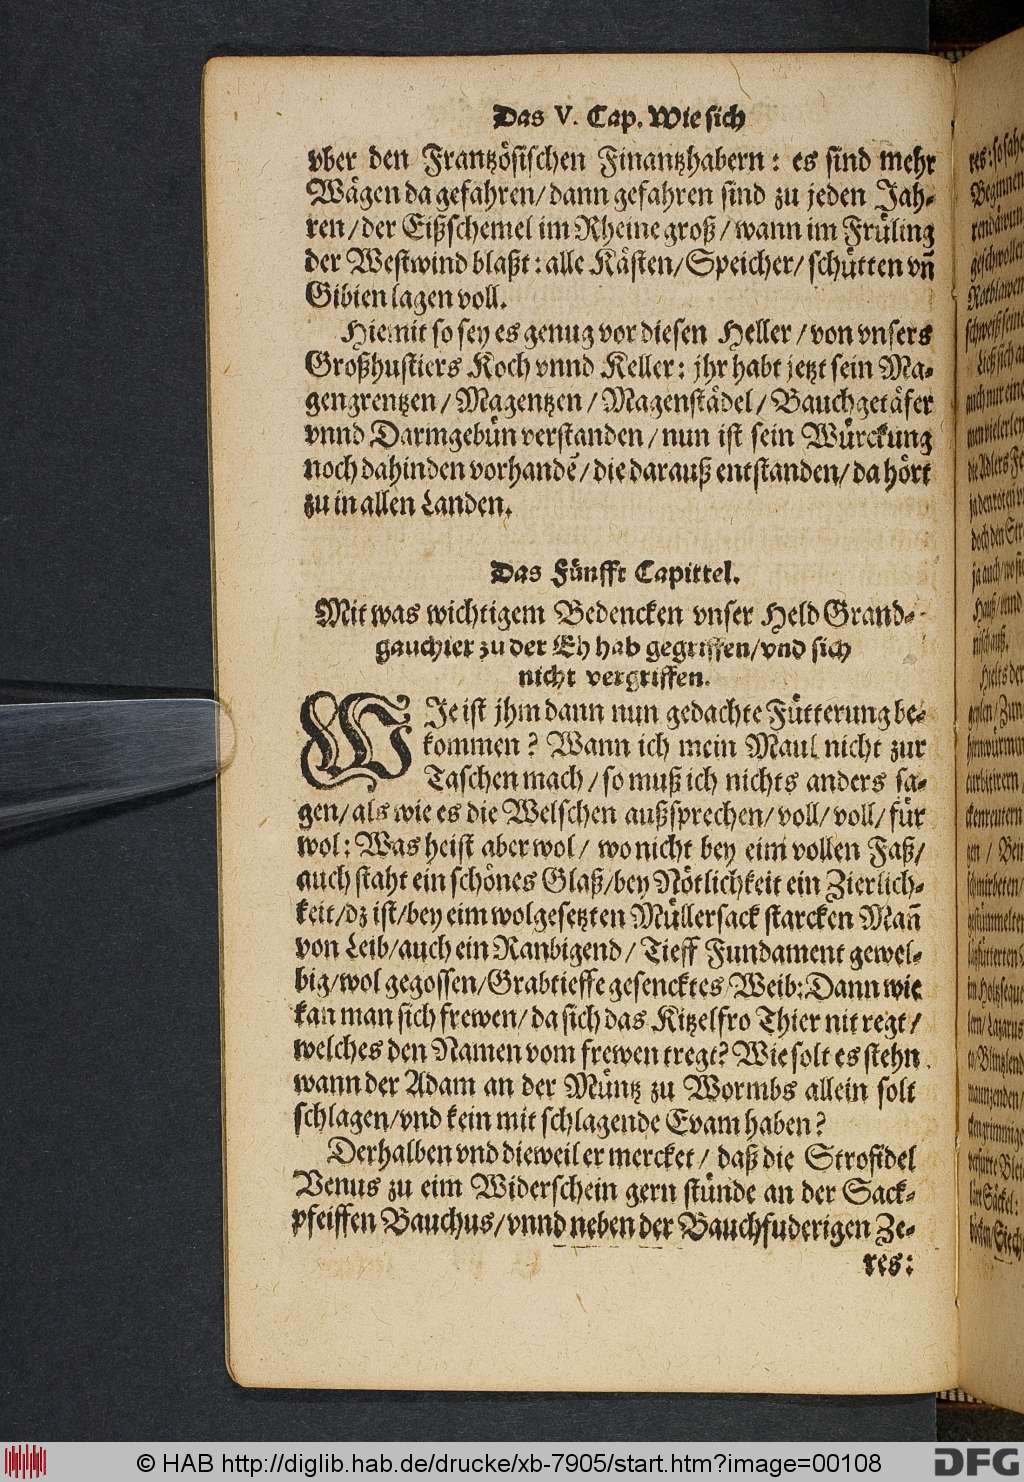 Das V. Cap. Wie sich
vber den Frantzösischen Finantzhabern: es sind mehr
Wägen da gefahren/ dann gefahren sind zu jeden Jah-
ren/ der Eißschemel im Rheine groß/ wann im Früling
der Westwind blaßt: alle Kästen/ Speicher/ schütten vñ
Gibien lagen voll.
Hiemit so sey es genug vor diesen Heller/ von vnsers
Großhustiers Koch vnnd Keller: jhr habt jetzt sein Ma-
gengrentzen/ Magentzen/ Magenstädel/ Bauchgetäfer
vnnd Darmgebün verstanden/ nun ist sein Würckung
noch dahinden vorhandẽ/ die darauß entstanden/ da hört
zu in allen Landen.
Das Fünfft Capittel.
Mit was wichtigem Bedencken vnser Held Grand-
gauchier zu der Eh hab gegriffen/ vnd sich
nicht vergriffen.
WIe ist jhm dann nun gedachte Fütterung be-
kommen? Wann ich mein Maul nicht zur
Taschen mach/ so muß ich nichts anders sa-
gen/ als wie es die Welschen außsprechen/ voll/ voll/ für
wol: Was heist aber wol/ wo nicht bey eim vollen Faß/
auch staht ein schönes Glaß/ bey Nötlichkeit ein Zierlich-
keit/ dz ist/ bey eim wolgesetzten Müllersack starcken Mañ
von Leib/ auch ein Ranbigend/ Tieff Fundament gewel-
big/ wol gegossen/ Grabtieffe gesencktes Weib: Dann wie
kan man sich frewen/ da sich das Kitzelfro Thier nit regt/
welches den Namen vom frewen tregt? Wie solt es stehn
wann der Adam an der Müntz zu Wormbs allein solt
schlagen/ vnd kein mit schlagende Evam haben?
Derhalben vnd dieweil er mercket/ daß die Strofidel
Venus zu eim Widerschein gern stünde an der Sack-
pfeiffen Bauchus/ vnnd neben der Bauchfuderigen Ze-
res:
© HAB http://diglib.hab.de/drucke/xb-7905/start.htm?image=00108
DFG